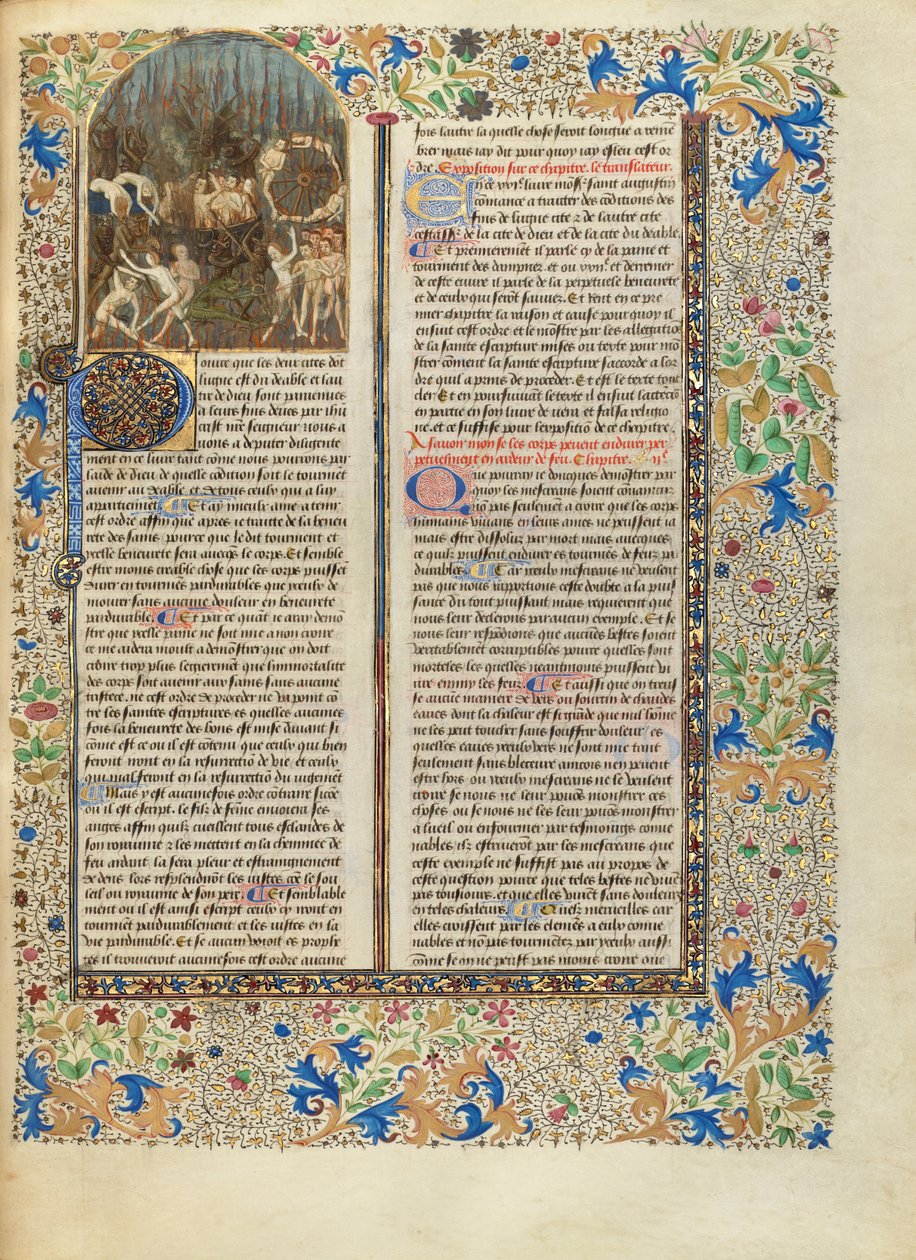 Ouire que les deux cites dot
lugne est du deable et lau
tre de dieu sont paruenues
a leurs fins deues par ihu
crist nostre seigneur nous a
uons a deputer diligente
ment en ce liure tant come nous pourons par
laide de dieu de quelle codition soit le tourmet
auenir au deable et de tous ceulx qui a luy
appartienet Et ay mieulx ame a tenir
cest ordre affin que apres ie traicte de la beneu
rete des sains pource que le dit tourment et
ycelle beneurete sera auecqs le corps. Et semble
estre moins creable chose que les corps puisset
durer en tourmes pardurables que yceulx de
mourer sans aucune douleur en beneurete
pardurable. Et par ce quat ie aray demo
stre que ycelle paine ne soit mie a non croire
ce me aidera moult a demostrer que on doit
croire trop plus legierement que limmortalite
des corps soit auenir aux sains sans aucune
tristece. ne cest ordre de proceder ne va point co
tre les saintes escriptures es quelles aucunes
fois la beneurete des bons est mise deuant si
come est ce ou il est cotenu que ceulx qui bien
feront iront en la resurrectio de vie et ceulx
qui mal feront en la resurrectio du iugement
Mais y est aucunesfois ordre cotraire sicoe
ou il est escript. le filz de fome enuoiera ses
anges affin quilz cueillent tous esclandes de
son royaume et les mettent en la cheminee de
feu ardant la sera pleur et estraignement
de dens lors resplendiront les iustes coe le sou
leil ou royaume de son pere. Et semblable
ment ou il est ainsi escript ceulx cy iront en
tourmet pardurablement et les iustes en la
vie pardurable. Et se aucun vouoit es prophe
tes il trouueroit aucunesfois cest ordre aucune
fois lautre la quelle chose seroit longue a reme
brer mais iay dit pour quoy iay esleu cest or
dre. Exposition sur ce chapitre. le translateur.
En ce liure mons. saint augustin
comance a traitier des coditions des
fins de lugne cite et de lautre cite
cestass. de la cite de dieu et de la cite du deable
Et premierement il parle cy de la paine et
tourment des dampnez. et ou et derrenier
de ceste euure il parle de la perpetuele beneurete
et de ceulx qui serot sauuez. Et rent en ce pre
mier chapitre la raison et cause pour quoy il
ensuit cest ordre et le mostre par les allegatios
de la sainte escripture mises ou texte pour mo
strer coment la sainte escripture saccorde a lor
dre quil a prins de proceder. Et est le texte tout
cler Et en poursuiuant le texte il ensuit lactecus
en partie en son liure de uera et falsa religio
ne. et ce suffise pour lexpositio de ce chapitre.
A sauoir mon se les corps peuent endurer per
petuelment en ardeur de feu. Chapitre. ii.
Que pourray ie doncques demostrer par
quoy les mescreans soient conuaincuz
no pas seulement a croire que les corps
humains viuans et leurs ames ne peussent ia
mais estre dissoluz par mort mais auecques
ce quilz puissent endurer es tourmes de feux par
durables. Car yceulx mescreans ne veulent
pas que nous rapportions ceste doubte a la puis
sance du tout puissant. mais requierent que
nous leur declerons par aucun exemple. Et se
nous leur respodions que aucunes bestes soient
veritablement corruptibles pource quelles sont
morteles les quelles neantmoins puissent vi
ure enmy les feux. Et aussi que on treuue
se aucune maniere de vers ou sourcin de chaudes
eaues dont la chaleur est si grande que nul home
ne les peut toucher sans souffrir douleur es
quelles eaues yceulx vers ne sont mie tant
seulement sans bleceure aincois ne peuent
estre hors ou yceulx mescreans ne le veulent
croire se nous ne leur pouos monstrer ces
choses ou se nous ne les leur pouos monstrer
a lueil ou enfourmer par tesmoings conue
nables. ilz estriueront par les mescreans que
ceste exemple ne suffist pas au propos de
ceste question pource que teles bestes ne viuet
pas tousiours. et que elles viuet sans douleur
en teles chaleurs. Quelz merueilles car
elles croissent par les elemes a eulx conue
nables et non pas tourmetez par yceulx aussi
come se on ne peust pas moins croire que